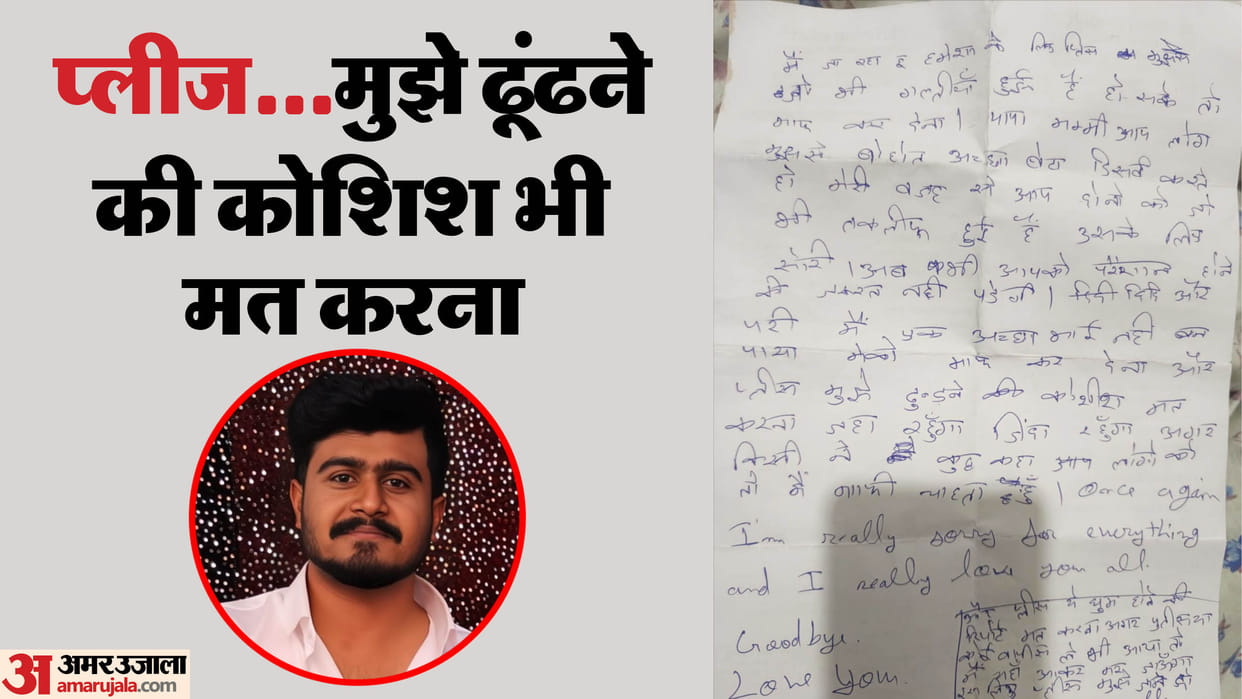 प्लीज...मुझे ढूंढने
की कोशिश भी
मत करना
अमर उजाला
amarujala.com
मैं जा रहा हु हमेशा के लिए प्लिस मुझसे
जो भी गलतीयाँ हुई हैं हो सके तो
माफ कर देना । पापा मम्मी आप लोग
मुझसे बोहोत अच्छा बेटा डिसर्व करते
हो मेरी वजह से आप दोनो को जो
भी तकलीफ हुई हैं उसके लिए
सोरी । अब कभी आपको परेशान होने
की जरूरत नही पडेगी । दिदी दिदि और
परी मैं एक अच्छा भाई नही बन
पाया मेको माफ कर देना और
प्लीस मुझे ढुन्डने की कोशीश मत
करना जहा रहुँगा जिंदा रहुँगा अगर
किसी ने कुछ कहा आप लोगो को
तो मैं माफी चाहता हुँ । Once again
I'm really sorry for everything
and I really love you all.
Goodbye.
Love You.
प्लीस ये घुम होने की
रिपोर्ट मत करना अगर पुलीस या
कोई वापीस ले भी आया तो
मैं यहाँ आकर मर जाऊँगा
प्लीस मुझे